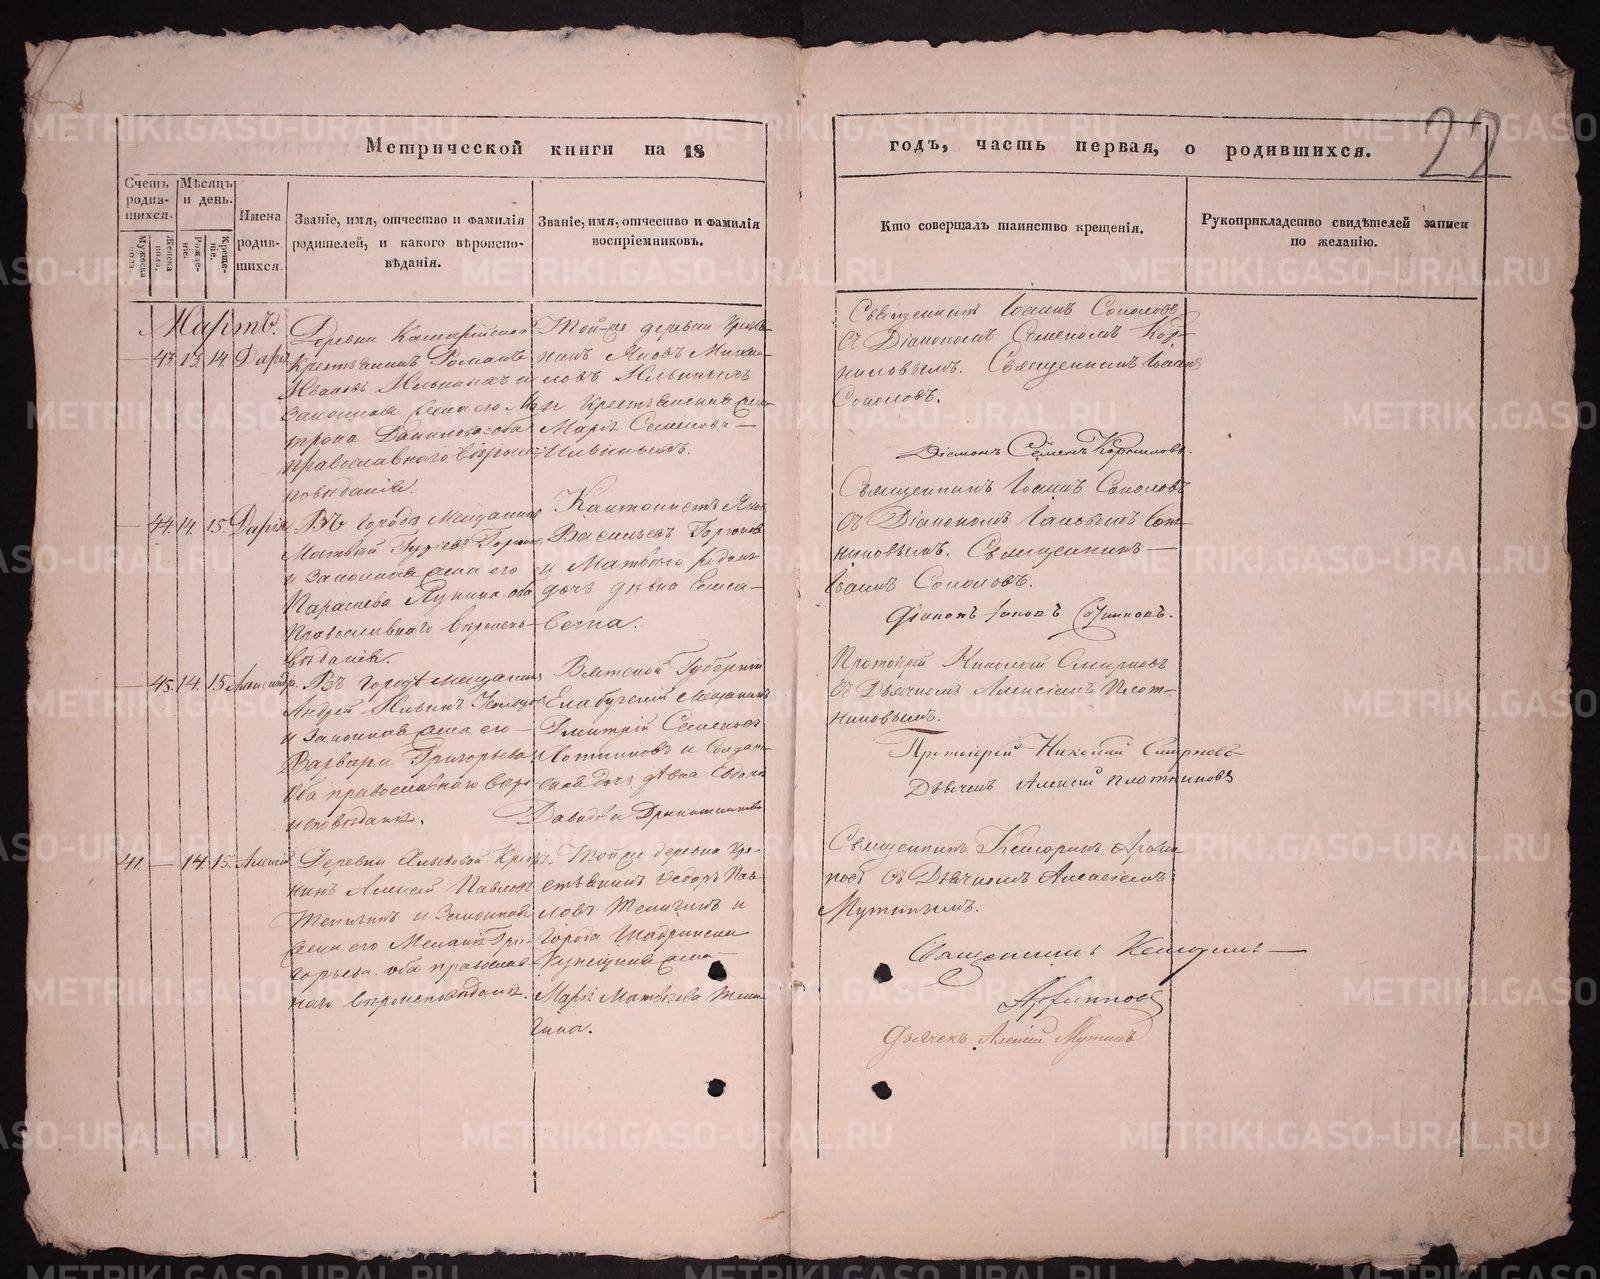 22
Метрической книги на 18
годъ, часть первая, о родившихся.
Счетъ родившихся.
Мужеска пола
Женска пола.
Мѣсяцъ и день.
Рожденіе.
Крещеніе.
Имена родившихся.
Званіе, имя, отчество и фамилія
родителей, и какого вѣроиспо-
вѣданія.
Званіе, имя, отчество и фамилія
воспріемниковъ.
Кто совершалъ таинство крещенія.
Рукоприкладство свидѣтелей записи
по желанію.
Мартъ.
43. 13. 14. Дарія
Деревни
Крестьянинъ Романъ
Ивановъ Ильиныхъ и
законная жена его Ма-
трона Данилова оба
православнаго вѣроис-
повѣданія.
Той-же деревни Кресть-
нинъ Яковъ Михаи-
ловъ Ильиныхъ
и Крестьянская жена
Марѳа Семенова
Ильиныхъ.
Священникъ Іоаннъ Соколовъ
съ Діакономъ Семеномъ Кор-
ниловымъ. Священникъ Іоаннъ
Соколовъ.
Діаконъ Семенъ Корниловъ.
44. 14. 15. Дарія
Въ городѣ Мещанинъ
Матвѣй
и Законная жена его
Параскева оба
Православнаго вѣроиспо-
вѣданія.
Кантонистъ Яковъ
Васильевъ
и Матвѣя родная
дочь дѣвка Елиса-
вета.
Священникъ Іоаннъ Соколовъ
съ Діакономъ Іаковомъ Сот-
никовымъ. Священникъ
Іоаннъ Соколовъ.
Діаконъ Іаковъ Сотниковъ.
45. 14. 15. Александра.
Въ городѣ Мещанинъ
Андрей Ильинъ
и Законная жена его
Варвара Григорьева
Оба православнаго вѣро-
исповѣданія.
Вятской Губерніи
Елабужскій Мещанинъ
Дмитрій Семеновъ
и Солдат-
ская дочь дѣвка Евдокія
Давидова
Протоіерей Николай Смирновъ
съ Дьячкомъ Алексіемъ Плот-
никовымъ.
Протоіерей Николай Смирновъ
Дьячекъ Алексѣй Плотниковъ
41. 14. 15. Алексій
Деревни Хлызовой Крестья-
нинъ Алексѣй Павловъ
и Законная
жена его Меланія Гри-
горьева оба православ-
наго вѣроисповѣданія.
Той-же деревни Кре-
стьянинъ Ѳедоръ Пав-
ловъ и
Города Шадринска
жена
Марія Матвѣева
Священникъ
съ Дьячкомъ Алексіемъ
Мутинымъ.
Священникъ
Дьячекъ Алексѣй Мутинъ